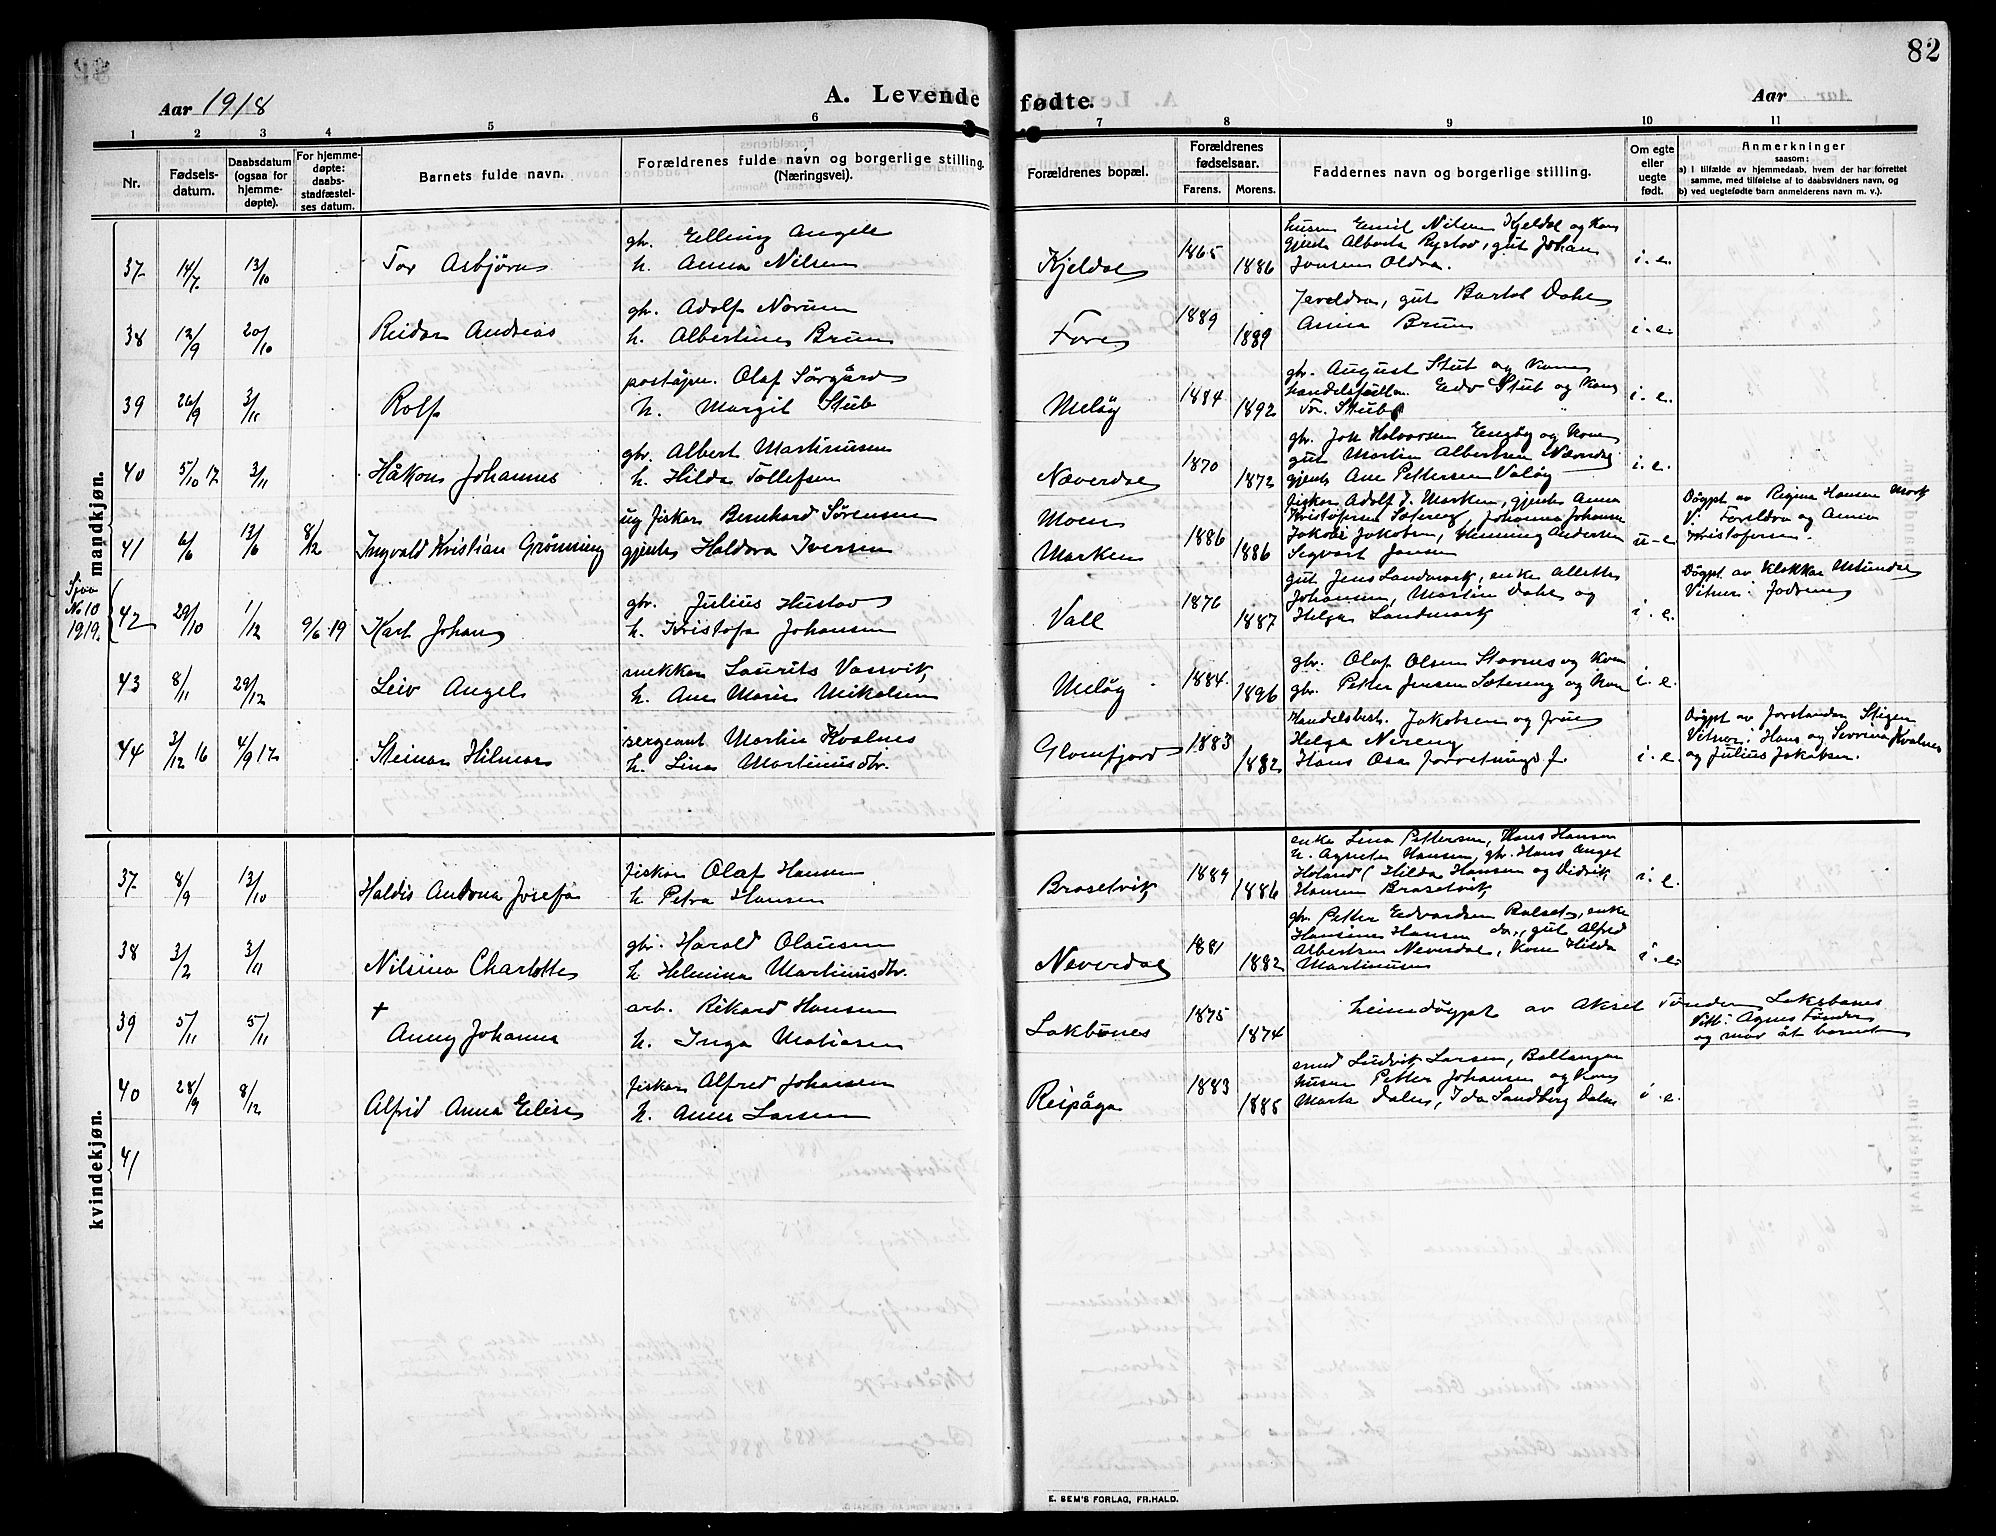 82
Aar 1918
A. Levende fødte.
Aar
1 2 3 4 5 6 7 8 9 10 11
Nr.
Fødsels-
datum.
Daabsdatum
(ogsaa for
hjemme-
døpte).
For hjemme-
døpte:
daabs-
stadfæstel-
ses datum.
Barnets fulde navn.
Forældrenes fulde navn og borgerlige stilling.
(Næringsvei).
Forældrenes bopæl.
Forældrenes
fødselsaar.
Farens. Morens.
Faddernes navn og borgerlige stilling.
Om egte
eller
uegte
født.
Anmerkninger
saasom:
a) I tilfælde av hjemmedaab, hvem der har forrettet
samme, med tilføielse af to daabsvidners navn, og
b) ved uegtefødte barn anmelderens navn m. v.).
mandkjøn.
37 14/7 13/10 Tor Asbjørn
gbr. Elling Angell
h. Anna Nilsen
Kjeldal 1865 1886
husm Emil Nilsen Kjeldal og kone
gjente Alberta Rystad, gut Johan
Jensen Oldra.
i. e.
38 12/9 20/10 Reidar Andreas
gbr. Adolf Norum
h. Albertine Brun
Fore 1889 1889
Foreldra, gut Bartol Dahl
Anna Brun
i. e.
39 26/9 3/11 Rolf
poståpn. Olaf Sørgård
h. Margit Stub
Meløy 1884 1892
gbr. August Stub og kone
handelsfullm. Edv Stub og kone
Tor. Stub
i. e.
40 5/10 17 3/11 Håkon Johannes
gbr. Albert Martinusen
h. Hilda Tollefsen
Neverdal 1870 1872
gbr. Joh Halvorsen Engøy og kone
gut Martin Albertsen Neverdal
gjente Ane Pettersen Valøy
i. e.
41 6/6 12/6 8/12 Ingvald Kristian Grønning
ug fiskar Bernhard Sørensen
gjente Haldora Iversen
Moen
Marken 1886 1886
fiskar Adolf J. Marken, gjente Anna
Kristofersen Sætereng, Johanna Johansen
Jakob Jakobsen, Henning Andersen
Segvart Jensen
u-e
Døypt av Regina Hansen Mork
V. Foreldra og Anna
Kristofersen.
Sjaa
No 10
1919.
42 29/10 1/12 9/6 19 Karl Johan
gbr. Julius Hustad
h. Kristofa Johansen
Vall 1876 1887
gut Jens Landmark, enke Alette
Johansen, Martin Dahl og
Helga Landmark
i. e.
Døypt av klokkar
Vitner: Fodrene
43 8/11 29/12 Leiv Angel
snekkar Laurits Vassvik,
h. Ane Marie Mikalsen
Meløy 1884. 1896
gbr. Olaf Olsen Stavnes og kone
gbr. Petter Jensen Sætereng og kone
i. e.
44 3/12 16 4/9 17 Steinar Hilmar
sergeant Martin Kvalnes
h. Lina Martinusdtr.
Glomfjord 1883 1882
Handelsbest. Jakobsen og frue
Helga Nereng
Hans Osa forretningsf.
i. e.
Døypt av forstander Stigen
Vitner: Hans og Severina Kvalnes
og Julius Jakobsen.
kvindekjøn.
37 8/9 13/10 Haldis Andona Josefa
fiskar Olaf Hansen
h Petra Hansen
Brasetvik 1889 1886
enke Lina Pettersen, Hans Hansen
h. Agnete Hansen, gbr. Hans Angel
Holand (Hilda Hansen og Didrik
Hansen Brasetvik
i. e.
38 3/2 3/11 Nilsina Charlotte
gbr. Harald Olausen
h. Helmina Martinusdtr.
Neverdal 1881 1882
gbr. Petter Edvardsen Bolset, enke
Hansine Hansen do., gut Alfred
Albertsen Neverdal, kone Hilda
Martinusen
i. e.
39 5/11 5/11 † Anny Johanna
arb. Rikard Hansen
h. Inga Matiasen
Laksbånes 1875 1874
heimdøypt av Aksel Tønder, Laksbånes
Vitt: Agnes Tønder
og mor åt barnet
40 28/9 8/12 Alfrid Anna Elise
fiskar Alfred Johansen
h. Anna Larsen
Reipåga 1883 1885
smed Ludvik Larsen, Ballangen
husm Petter Johansen og kone
Marta Dalen, Ida Sandberg Dalen
i. e.
41
E. SEM'S FORLAG, FR.HALD.